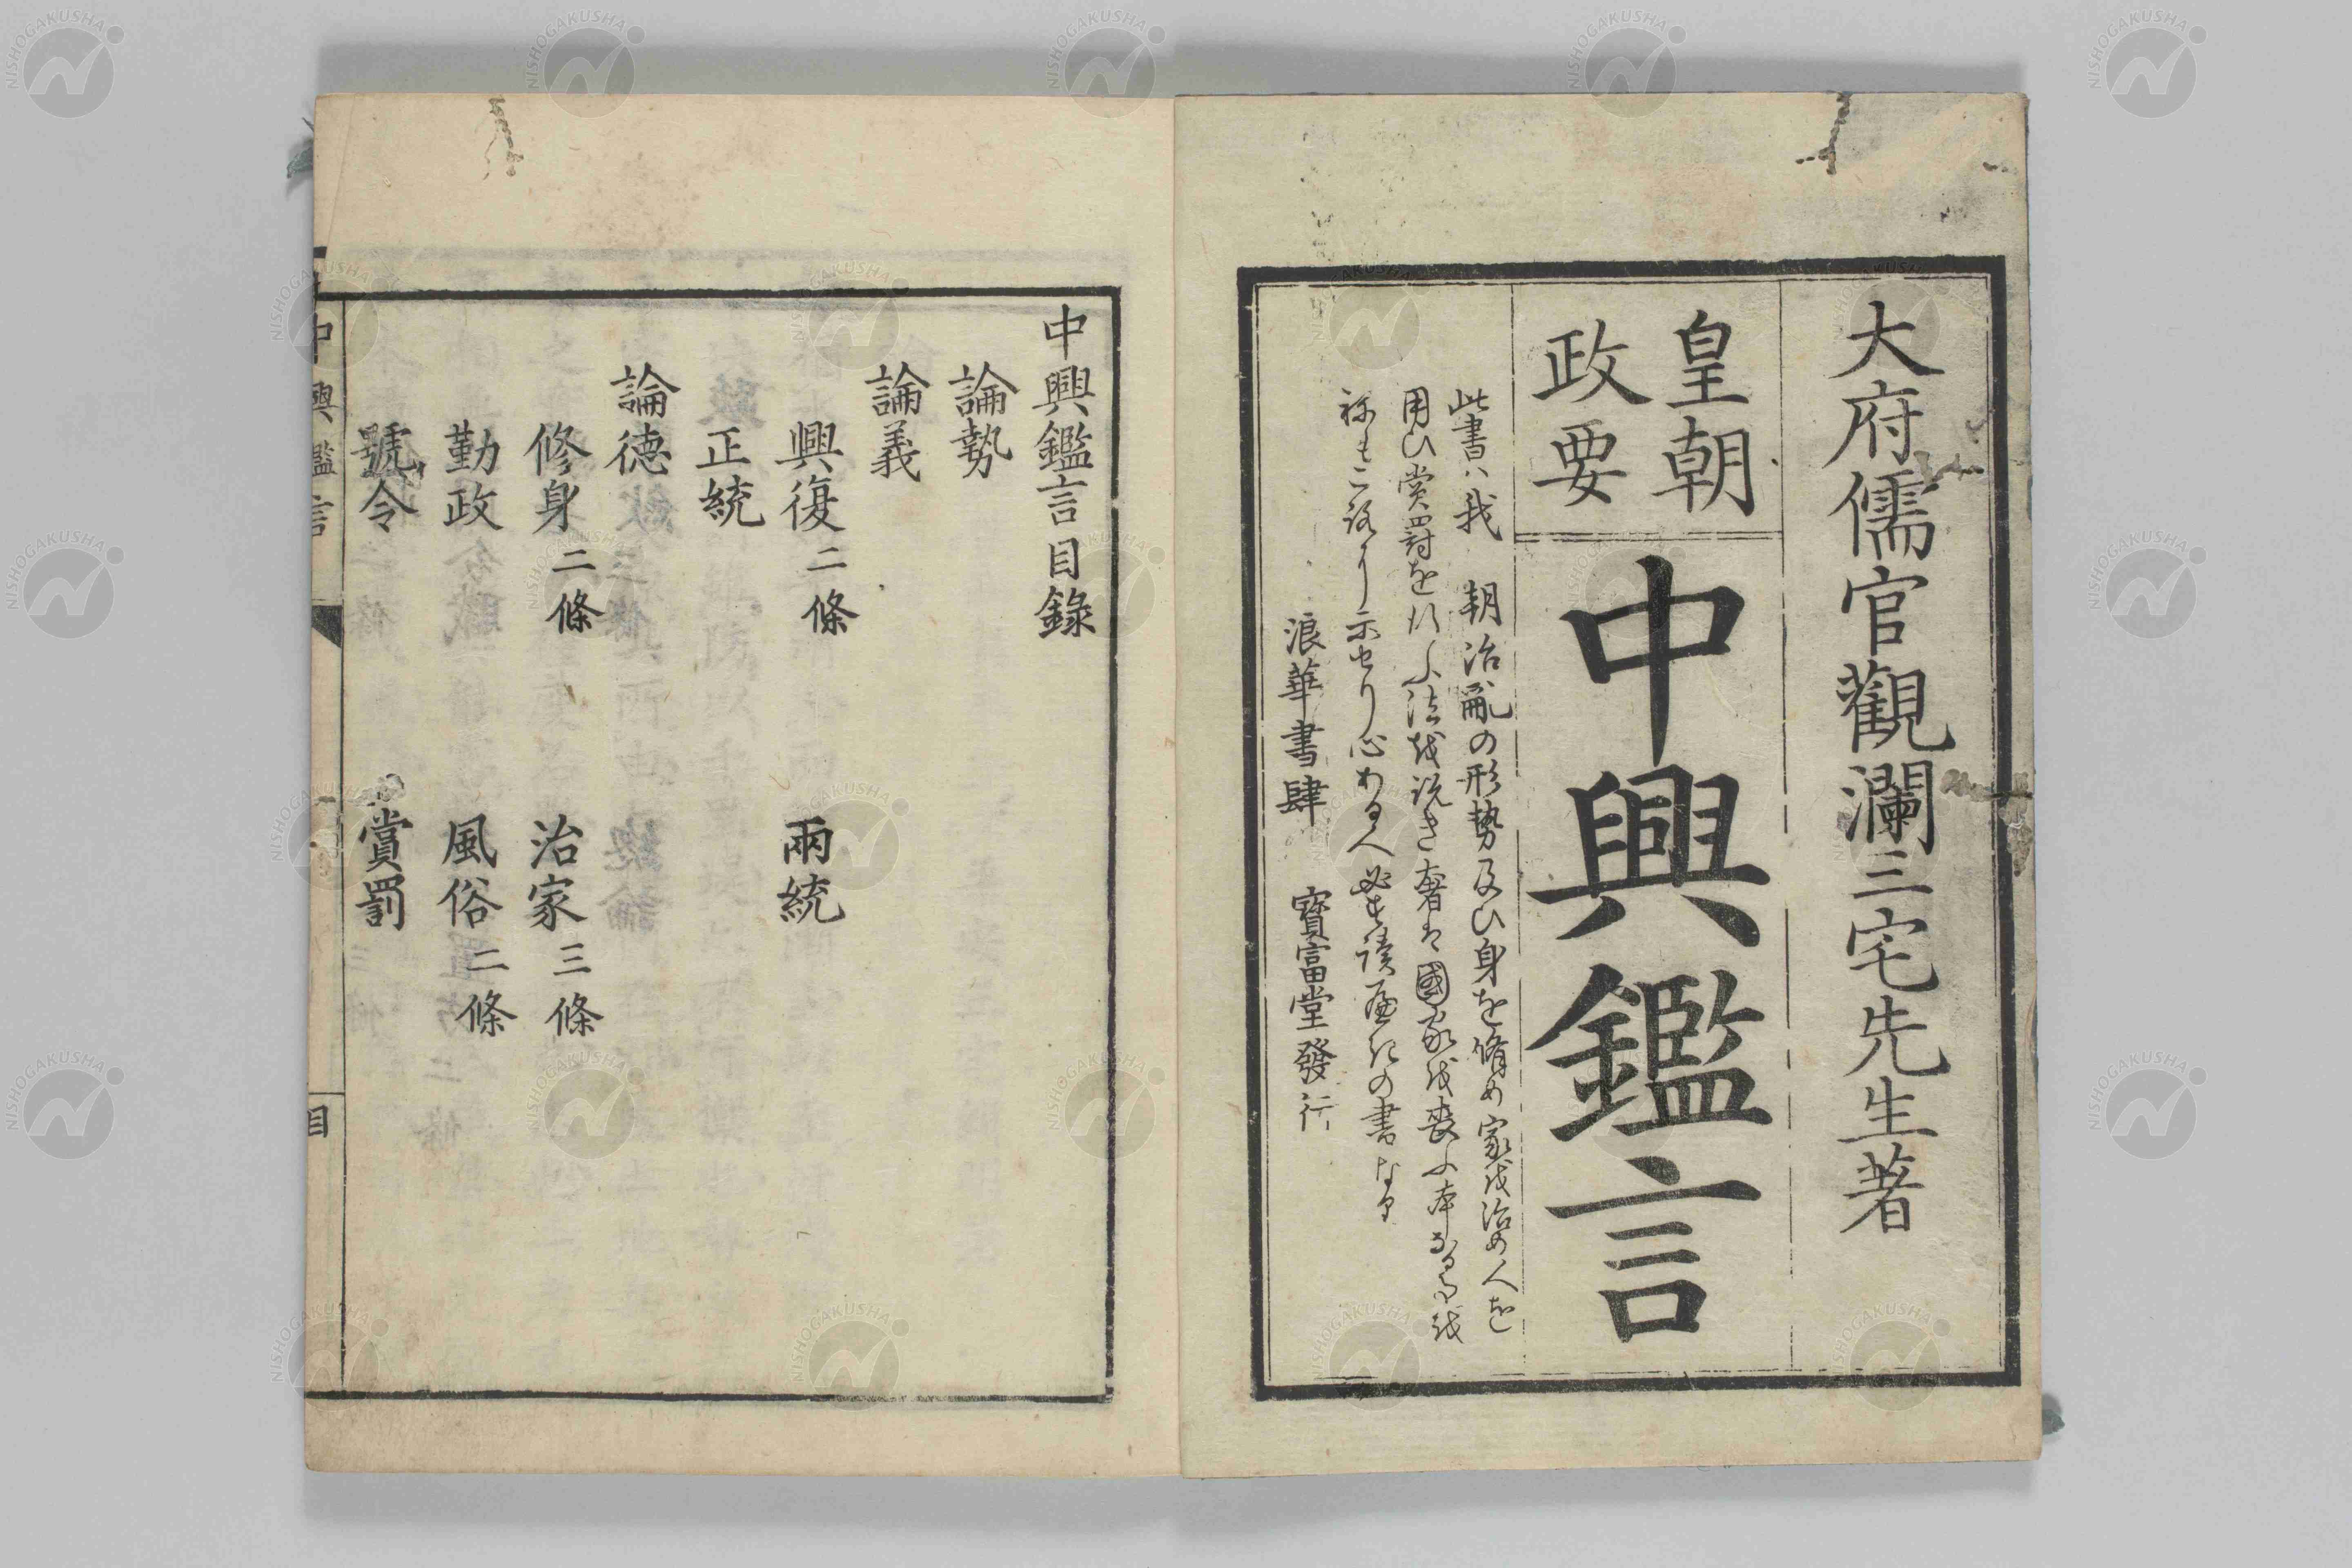 大府儒官觀瀾三宅先生著
皇朝
政要
中興鑑言
此書ハ我　朝治亂の形勢及ひ身を脩め家を治め人を
用ひ賞罰を行ふ法を説き奢は國家を喪ふ本なる事を
心ある人必す讀へきの書なり
浪華書肆　寶富堂發行
中興鑑言目錄
論勢
論義
興復二條　兩統
正統
論德
修身二條　治家三條
勤政　風俗二條
號令　賞罰
中興鑑言
目
NISHOGAKUSHA